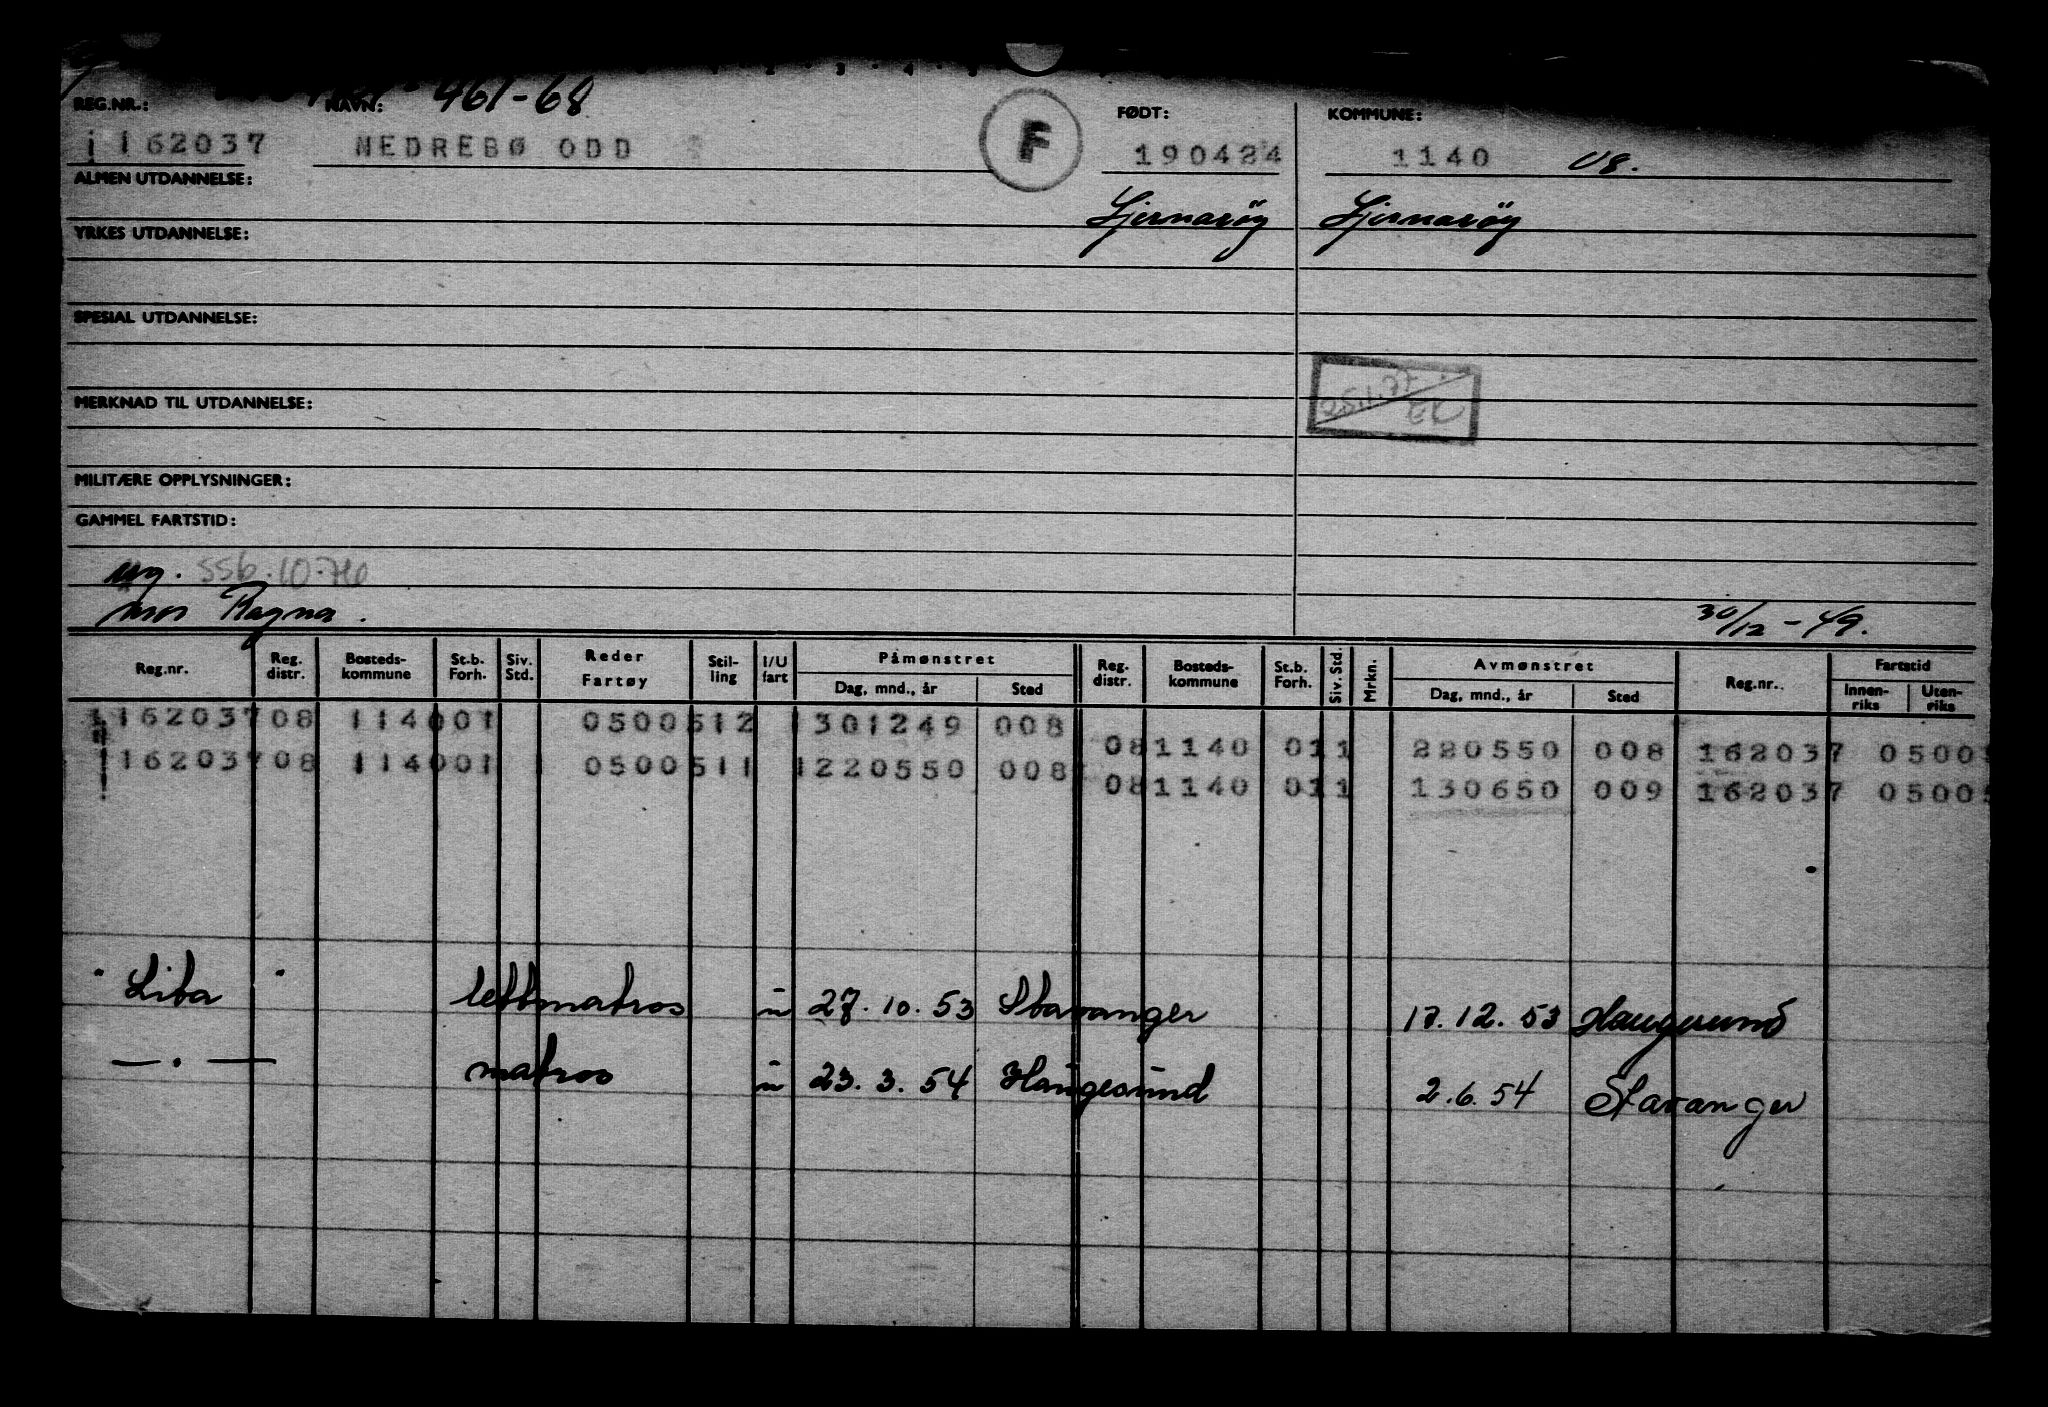 461-68
REG.NR.: NAVN: F FØDT: KOMMUNE:
162037 NEDREBØ ODD 190424 1140 08.
ALMEN UTDANNELSE:
Sjernarøy Sjernarøy
YRKES UTDANNELSE:
SPESIAL UTDANNELSE:
25.1.77 EK
MERKNAD TIL UTDANNELSE:
MILITÆRE OPPLYSNINGER:
GAMMEL FARTSTID:
ug. SSB.10.76
mor Ragna. 30/12-49.
Reg.nr. Reg. distr. Bosteds-kommune St.b. Forh. Siv. Std. Reder Fartøy Stil-ling I/U fart Påmønstret Dag, mnd., år Sted Reg. distr. Bosteds-kommune St.b. Forh. Siv. Std. Mrkn. Avmønstret Dag, mnd., år Sted Reg.nr. Fartstid Innen-riks Uten-riks
162037 08 1140 01 0500 512 301249 008
08 1140 01 1 220550 008 162037 0500
162037 08 1140 01 1 0500 511 1220550 008
08 1140 01 1 130650 009 162037 0500
"Liba" lettmatros u 27.10.53 Stavanger 17.12.53 Haugesund
— . — matros u 23.3.54 Haugesund 2.6.54 Stavanger